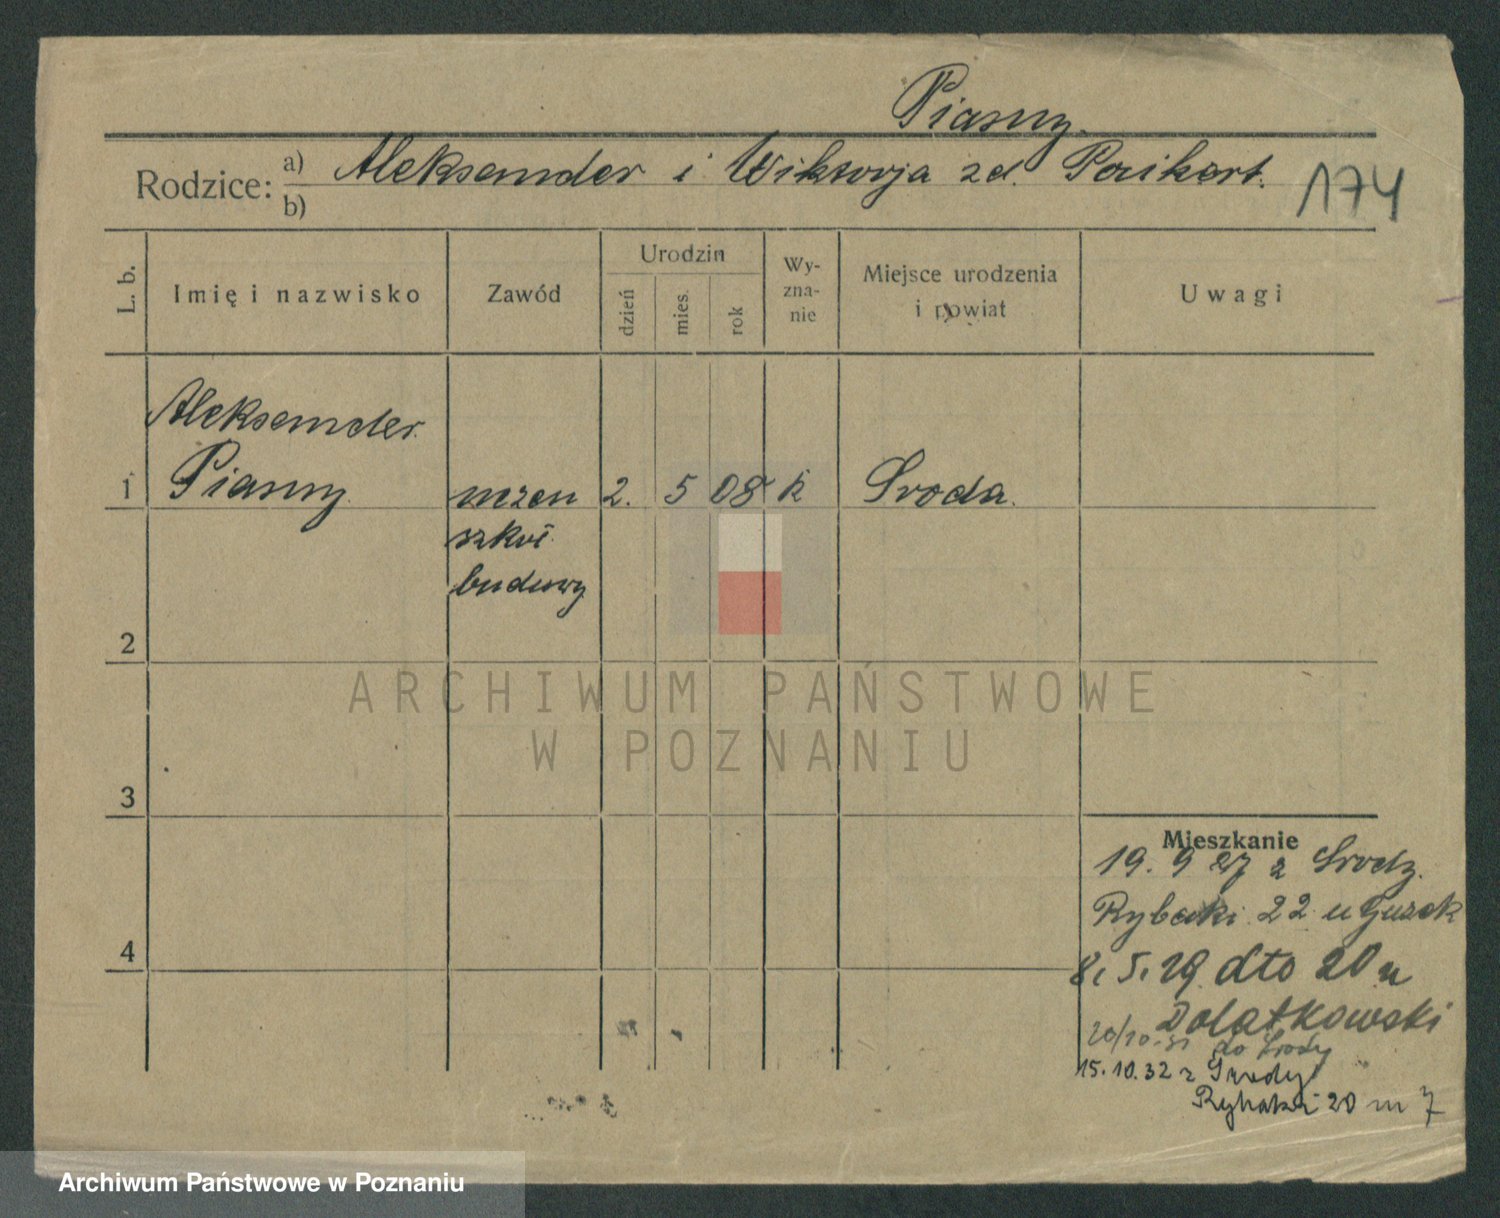 Piasny.
Rodzice: a) Aleksander i Wiktorja zd. Paikert.
b)
174
L. b.
Imię i nazwisko
Zawód
Urodzin
dzień
mies.
rok
Wy-
zna-
nie
Miejsce urodzenia
i powiat
Uwagi
Aleksander
1 Piasny. uczen 2. 5 08 k Sroda.
szkoł
budowy
2
3
4
Mieszkanie
19. 9 27 z Srody.
Rybaki 22 u
8. 5. 29 dto 20 u
Dolatkowski
20/10.31 do Srody
15.10.32 z Srody
Rybaki 20 m 7
ARCHIWUM PAŃSTWOWE
W POZNANIU
Archiwum Państwowe w Poznaniu